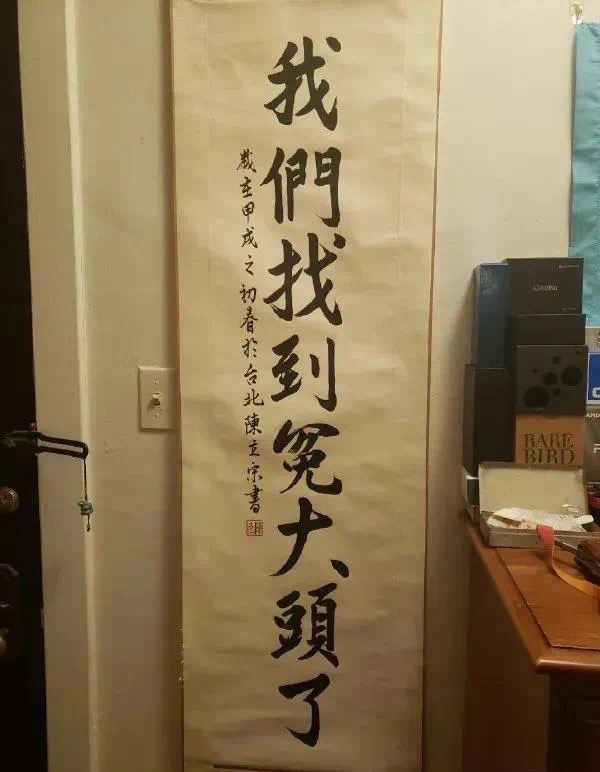 我們找到冤大頭了
歲在甲戌之初春於台北陳立宗書
RARE
BIRD